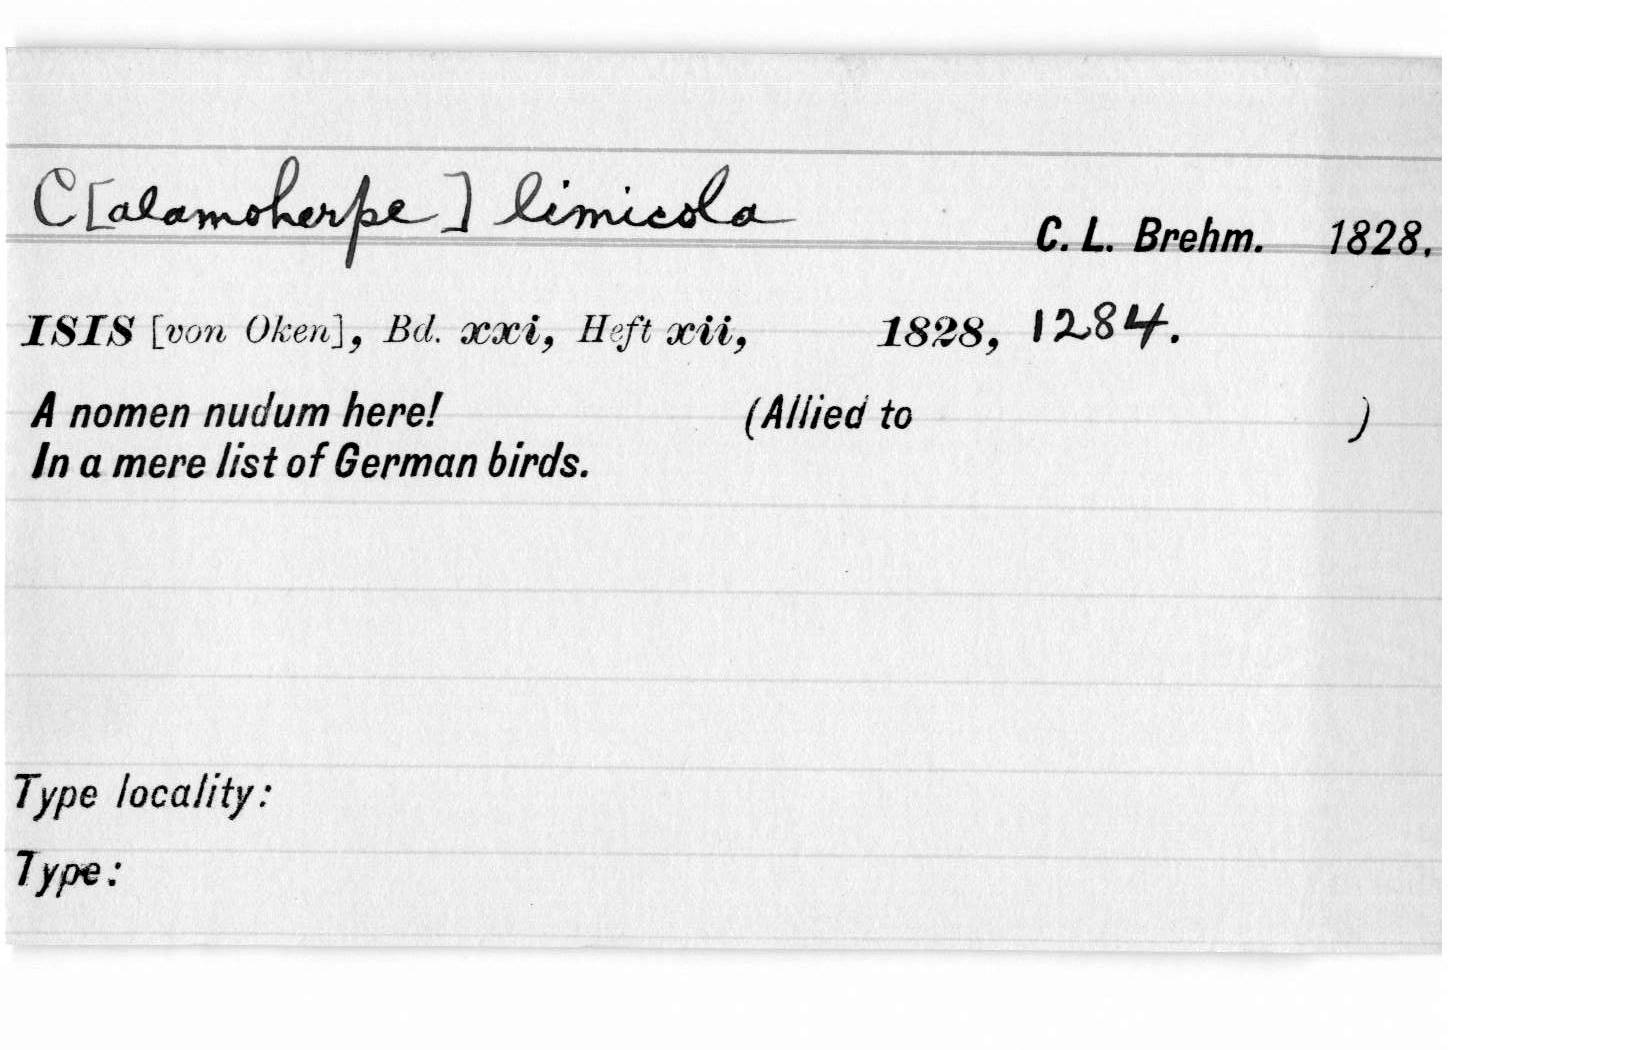 C[alamoherpe] limicola
C. L. Brehm. 1828.
ISIS [von Oken], Bd. xxi, Heft xii, 1828, 1284.
A nomen nudum here! (Allied to )
In a mere list of German birds.
Type locality:
Type: